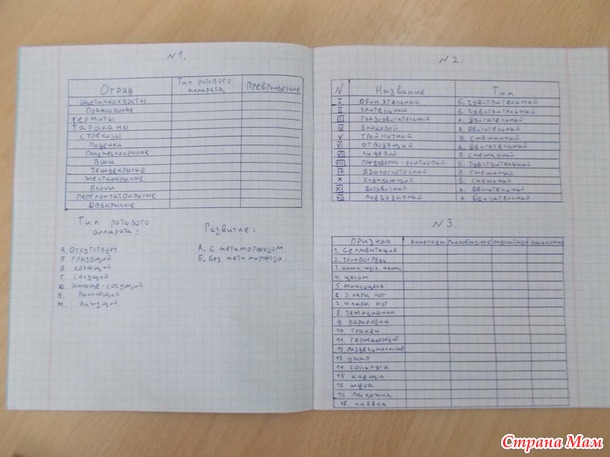 №1.
Отряд Тип ротового аппарата Превращение
Щетинкохвосты
Прямокрылые
Термиты
Тараканы
Стрекозы
Поденки
Полужесткокрылые
Вши
Чешуекрылые
Жесткокрылые
Блохи
Перепончатокрылые
Двукрылые
Тип ротового аппарата:
А. Отсутствует
Б. Грызущий
В. Колющий
Г. Сосущий
Е. Лакающий
Ж. Лижущий
Развитие:
А. С метаморфозом
Б. Без метаморфоза
№2.
N Название Тип
I Обонятельный Б. Чувствительный
II Зрительный Б. Чувствительный
III Глазодвигательный А. Двигательный
IV Блоковой А. Двигательный
V Тройничный В. Смешанный
VI Отводящий А. Двигательный
VII Лицевой В. Смешанный
VIII Б. Чувствительный
IX Языкоглоточный В. Смешаный
X Блуждающий В. Смешаный
XI Добавочный А. Двигательный
XII Подъязычный А. Двигательный
№3.
Признак
1. Сегментация
2. Головогрудь
4. Целом
5. Миксоцель
6. 3 пары ног
7. 4 пары ног
8. Гемоцианин
9. Параподии
10. Трахеи
11. Гермафродит
12. Раздельнополые
14. Сольпуга
15. Клещи
16. Муха
17. Пескожил
18. Пиявка
Страна Мам